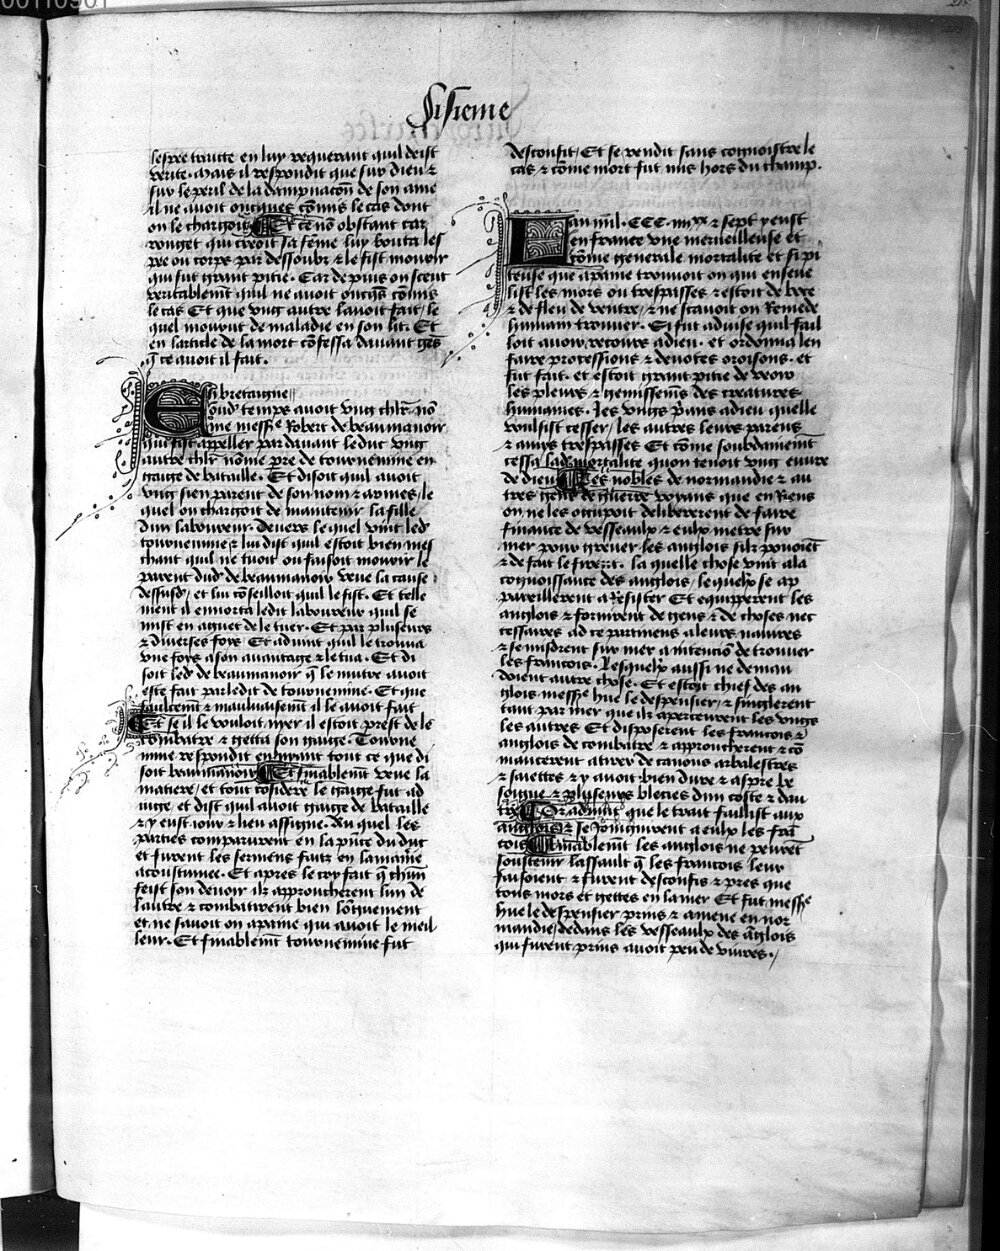 Sisieme
lespee traicte en luy requerant quil deist
verite. Mais il respondit que sur dieu &
sur le peril de la dampnacon de son ame
il ne avoit oncques comis le cas dont
on le chargoit Et ce no obstant car
rouget qui creoit sa feme luy bouta les
pee ou corps par dessoubz & le fist mourir
qui fut grant pitie. Car depuis on sceut
veritablemt quil ne avoit oncqs comis
le cas Et que ung autre lavoit fait / le
quel mourut de maladie en son lit. Et
en larticle de la mort cofessa davant ges
q ce avoit il fait.
En bretaigne
oud temps avoit ung chlr no
me messe Robert de beaumanoir
qui fist appeller par davant le duc ung
autre chlr nome pre de tournemine en
gaige de bataille. Et disoit quil avoit
ung sien parent de son nom & armes / le
quel on chargoit de maintenir la fille
dun laboureur. Devers le quel vint led
tournemine & lui dist quil estoit bien mes
chant quil ne tuoit ou faisoit mourir le
parent dud de beaumanoir veue la cause
dessusd / et lui coseilloit quil le fist. Et telle
ment il ennorta ledit laboureur quil se
mist en aguet de le tuer. Et par plusieurs
& diverses foys Et advint quil le trouva
une foys a son avantage & le tua. Et di
soit led de beaumanoir q le murtre avoit
este fait par ledit de tournemine. Et que
faulcemt & mauvaisemt il le avoit fait
Et se il le vouloit nyer il estoit prest de le
combatre & getta son gaige. Tourne
mine respondit en nyant tout ce que di
soit beaumanoir Et finablemt veue la
matiere / et tout cosidere le gaige fut ad
iuge et dist quil avoit gaige de bataille
& y eust iour & lieu assigne. Au quel les
parties comparurent en la pnce du duc
et furent les sermens faitz en la maniere
acoustumee. Et apres le cry fait q chun
feist son devoir ilz approucherent lun de
lautre & combatirent bien longuement
et ne savoit on apaine qui avoit le meil
leur. Et finablemt tournemine fut
desconfit / Et se rendit sans congnoistre le
cas & come mort fut mis hors du champ.
Lan mil. CCC. iiiixx & sept y eust
en france une merveilleuse et
come generale mortalite et si pi
teuse que apaine trouvoit on qui enseve
list les mors ou trespasses & estoit de boce
& de fleu de ventre / & ne scavoit on Remede
humain trouver. Si fut advise quil fail
loit avoir recours a dieu. et ordonna len
faire processions & devotes oroisons. et
fut fait. et estoit grant pitie de veoir
les pleurs & gemissemens des creatures
humaines. Les ungs prians a dieu quelle
voulsist cesser / les autres leurs parens
& amys trespasses Et come soubdainemt
cessa lad mortalite quon tenoit ung euvre
de dieu Les nobles de normandie & au
tres gens de guerre voyans que en Riens
on ne les occupoit delibererent de faire
finance de vesseaulx & eulx metre sur
mer pour grever les anglois silz povoiet
& de fait le firent. la quelle chose vint a la
congnoissance des anglois / lequelx se ap
pareillerent a Resister Et equipperent les
anglois & fornirent de gens & de choses nec
cessaires ad ce partinens a leurs navires
& se misdrent sur mer a intencion de trouver
les francois. Lesquelx aussi ne deman
doient autre chose. Et estoit chief des an
glois messe hue le despensier / & singlerent
tant par mer que ilz apercevrent les ungs
les autres Et disposerent les francois &
anglois de combatre & approucherent & co
mancerent a tirer de canons arbalestres
& saiettes & y avoit bien dure & aspre be
soigne & plusieurs blecies dun coste & dau
tre Or advint que le trait faillist aux
anglois & se joingnirent a eulx les fra
cois Finablemt les anglois ne peuret
soustenir lassault q les francois leur
faisoient & furent desconfis & pres que
tous mors et gettes en la mer Et fut messe
hue le despensier prins & amene en nor
mandie / dedans les vesseaulx des anglois
qui furent prins avoit peu de vivres.